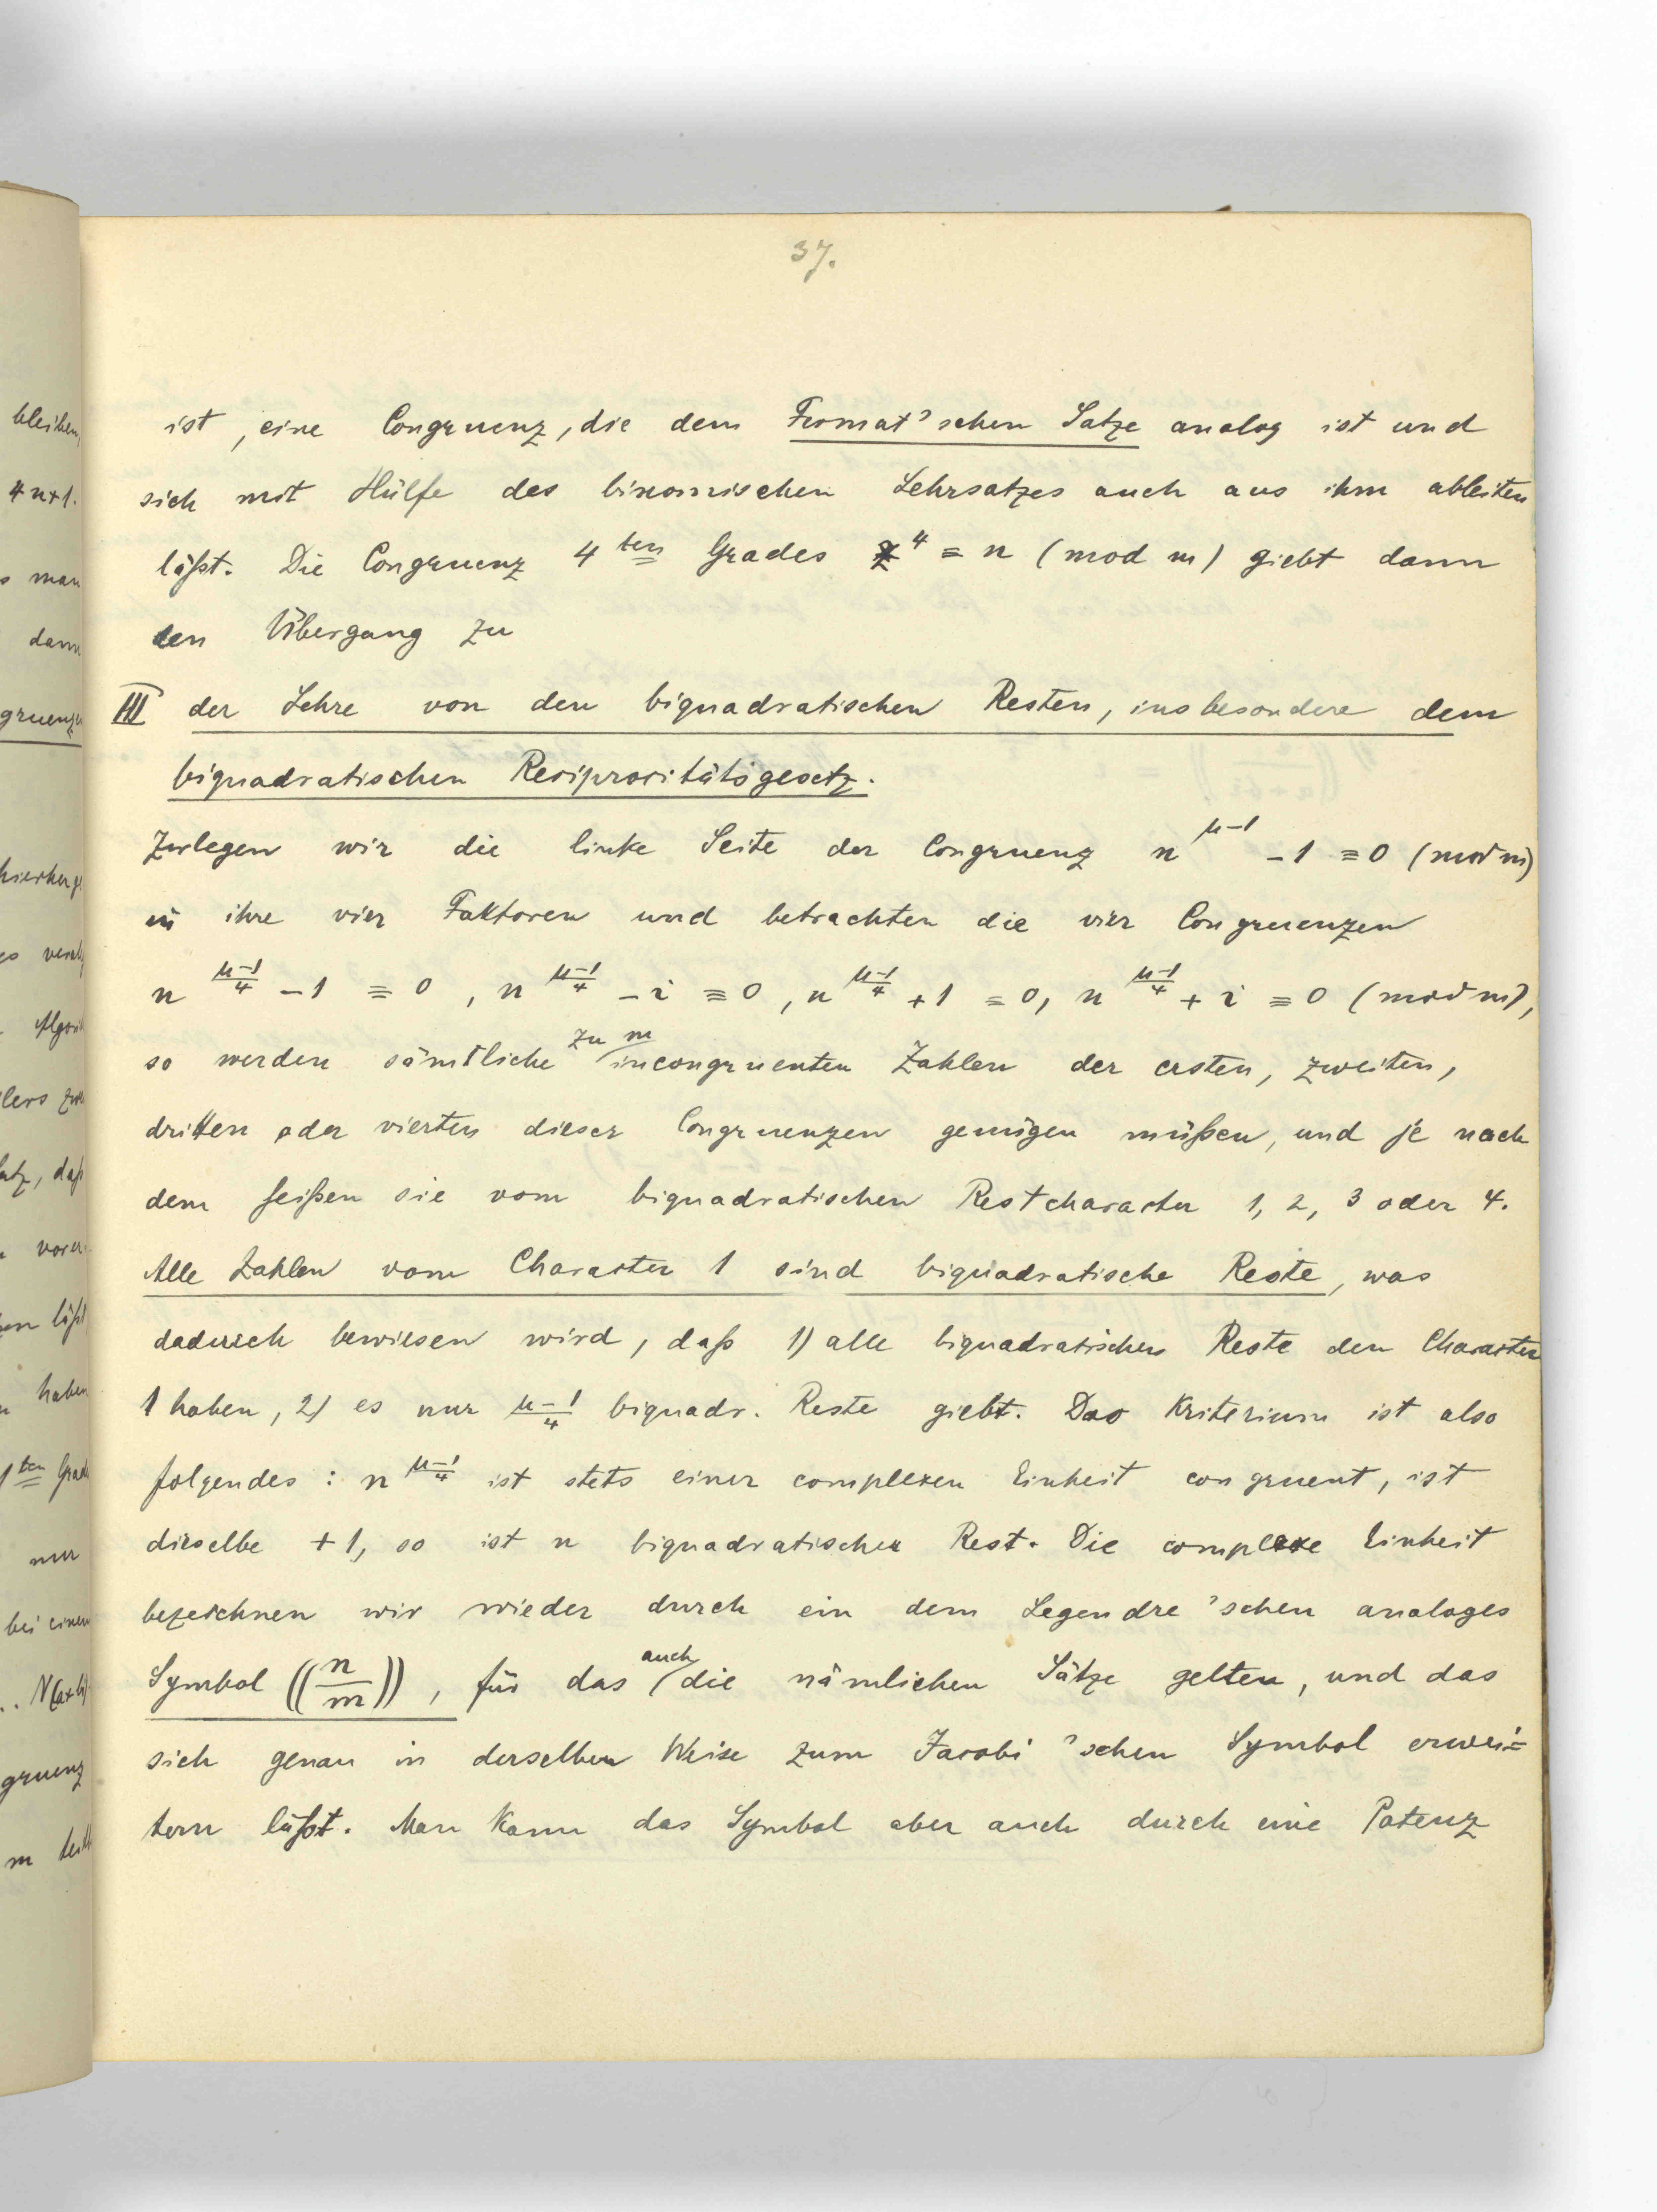 37.
ist, eine Congruenz, die dem Fermat'schen Satze analog ist und
sich mit Hülfe des binomischen Lehrsatzes auch aus ihm ableiten
läßt. Die Congruenz 4ten Grades z⁴ ≡ n (mod m) giebt dann
den Übergang zu
III der Lehre von den biquadratischen Resten, insbesondere dem
biquadratischen Reciprocitätsgesetz.
Zerlegen wir die linke Seite der Congruenz n^(μ-1) - 1 ≡ 0 (mod m)
in ihre vier Faktoren und betrachten die vier Congruenzen
n^((μ-1)/4) - 1 ≡ 0, n^((μ-1)/4) - i ≡ 0, n^((μ-1)/4) + 1 ≡ 0, n^((μ-1)/4) + i ≡ 0 (mod m),
so werden sämtliche zu m incongruenten Zahlen der ersten, zweiten,
dritten oder vierten dieser Congruenzen genügen müßen, und je nach
dem heißen sie vom biquadratischen Restcharacter 1, 2, 3 oder 4.
Alle Zahlen vom Character 1 sind biquadratische Reste, was
dadurch bewiesen wird, daß 1) alle biquadratischen Reste den Character
1 haben, 2) es nur (μ-1)/4 biquadr. Reste giebt. Das Kriterium ist also
folgendes: n^((μ-1)/4) ist stets einer complexen Einheit congruent, ist
dieselbe +1, so ist n biquadratischer Rest. Die complexe Einheit
bezeichnen wir wieder durch ein dem Legendre'schen analoges
Symbol ((n/m)), für das auch die nämlichen Sätze gelten, und das
sich genau in derselben Weise zum Jacobi'schen Symbol erwei=
tern läßt. Man kann das Symbol aber auch durch eine Potenz
bleiben,
4n+1.
man
dann
gruenzen
Algori
daß
läßt
haben
1ten Grad
nur
bei einem
N(a+bi)
gruenz
m